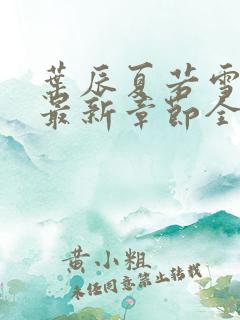 葉辰夏若雪
最新章節全
黄小粗
未经同意禁止转载